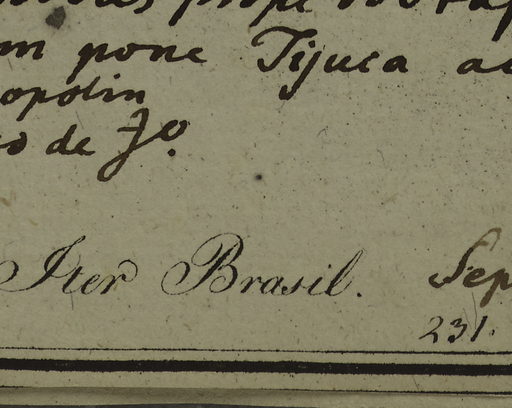 prope
m pone Tijuca a
opolin
o de J.º
Iter Brasil. Sep
231.